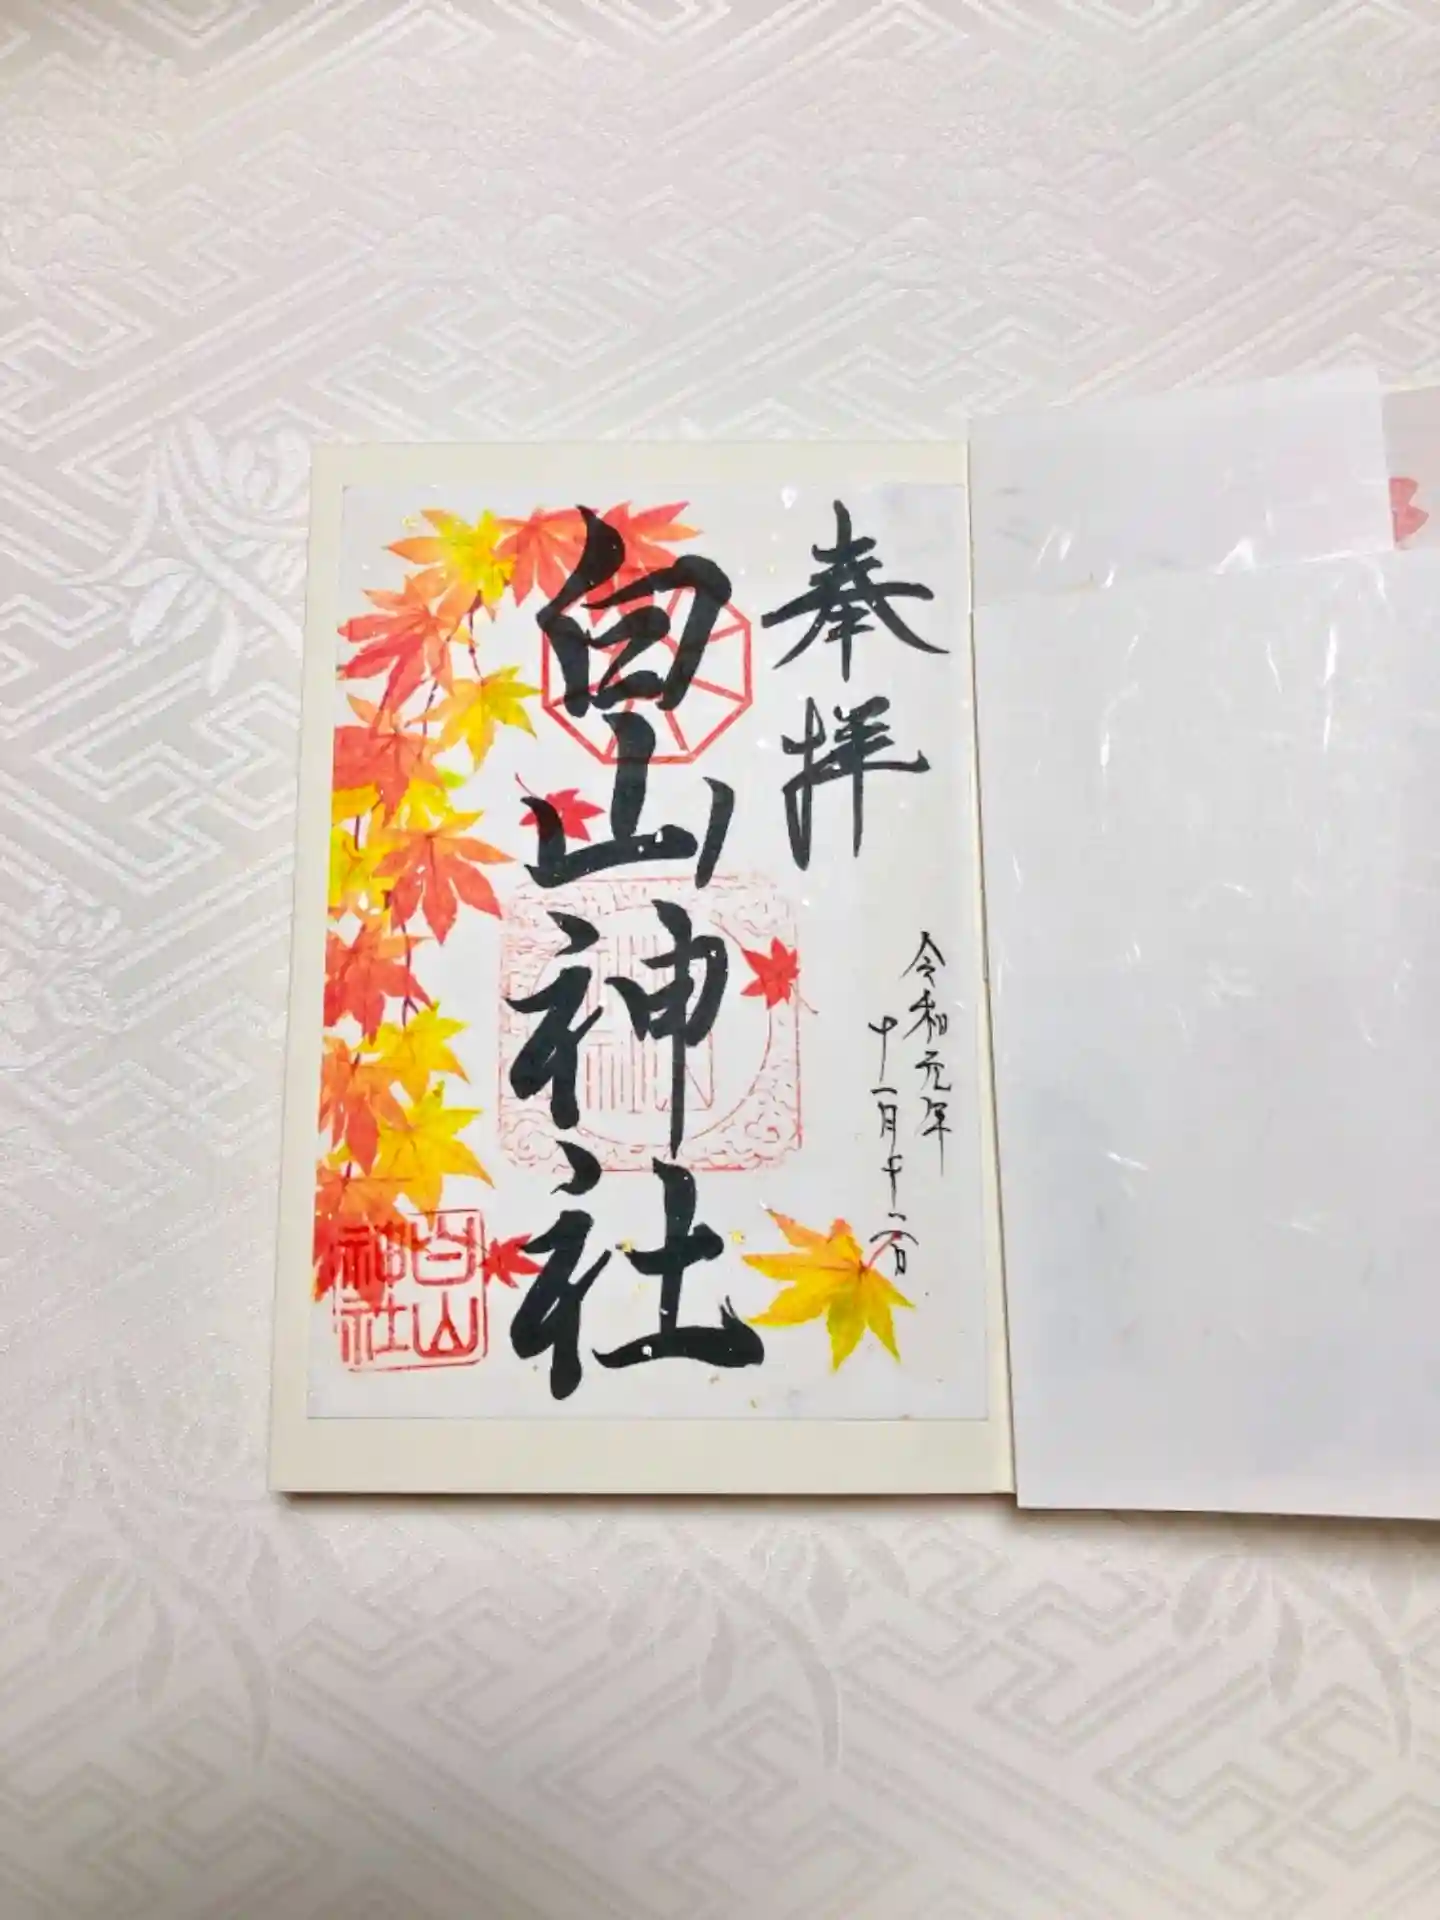 奉拝
令和元年
十一月十六日
白山神社
白山
神社